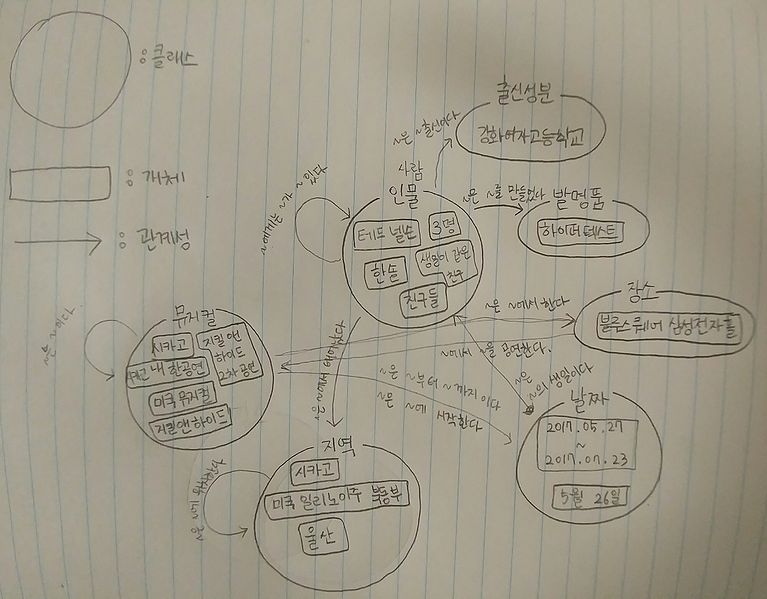 : 클래스
: 개체
: 관계성
출신성분
강화여자고등학교
~은 ~출신이다
사람
인물
테드 넬슨
3명
한솔
생일이 같은
친구
친구들
~에게는 ~가 ~ 있다
~은 ~를 만들었다
발명품
하이퍼텍스트
장소
블루스퀘어 삼성전자홀
~은 ~에서 한다
~에서 ~을 공연한다.
~은 ~의 생일이다
~은 ~부터 ~까지이다
~은 ~에 시작한다
날짜
2017.05.27
~
2017.07.23
5월 26일
뮤지컬
시카고
지킬앤
하이드
2차 공연
시카고 내한공연
미국 뮤지컬
지킬앤하이드
~은 ~이다.
~은 ~에서 태어났다
지역
시카고
미국 일리노이주 북동부
울산
~은 ~에 위치한다